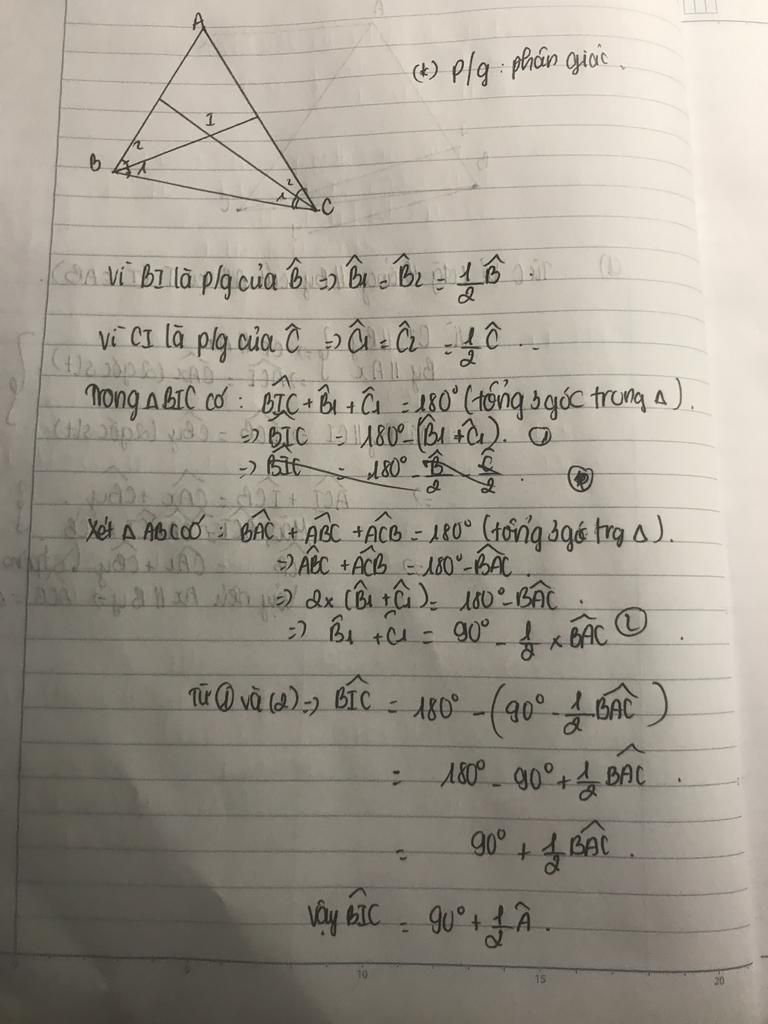 A
(*) p/g : phân giác.
I
B
2
1
2
1
C
Vì BI là p/g của B̂ => B̂1 = B̂2 = 1/2 B̂ .
Vì CI là p/g của Ĉ => Ĉ1 = Ĉ2 = 1/2 Ĉ ..
Trong ΔBIC có : BIC + B̂1 + Ĉ1 = 180° (tổng 3 góc trong Δ).
=> BIC = 180° - (B̂1 + Ĉ1). ①
=> BIC = 180° - B̂/2 - Ĉ/2 .
Xét Δ ABC có : BAC + ABC + ACB = 180° (tổng 3 gó trg Δ).
=> ABC + ACB = 180° - BAC .
=> 2x (B̂1 + Ĉ1) = 180° - BAC .
=> B̂1 + Ĉ1 = 90° - 1/2 x BAC ② .
Từ ① và (2) => BIC = 180° - (90° - 1/2 BAC)
= 180° - 90° + 1/2 BAC .
= 90° + 1/2 BAC .
Vậy BIC = 90° + 1/2 Â .
10
15
20